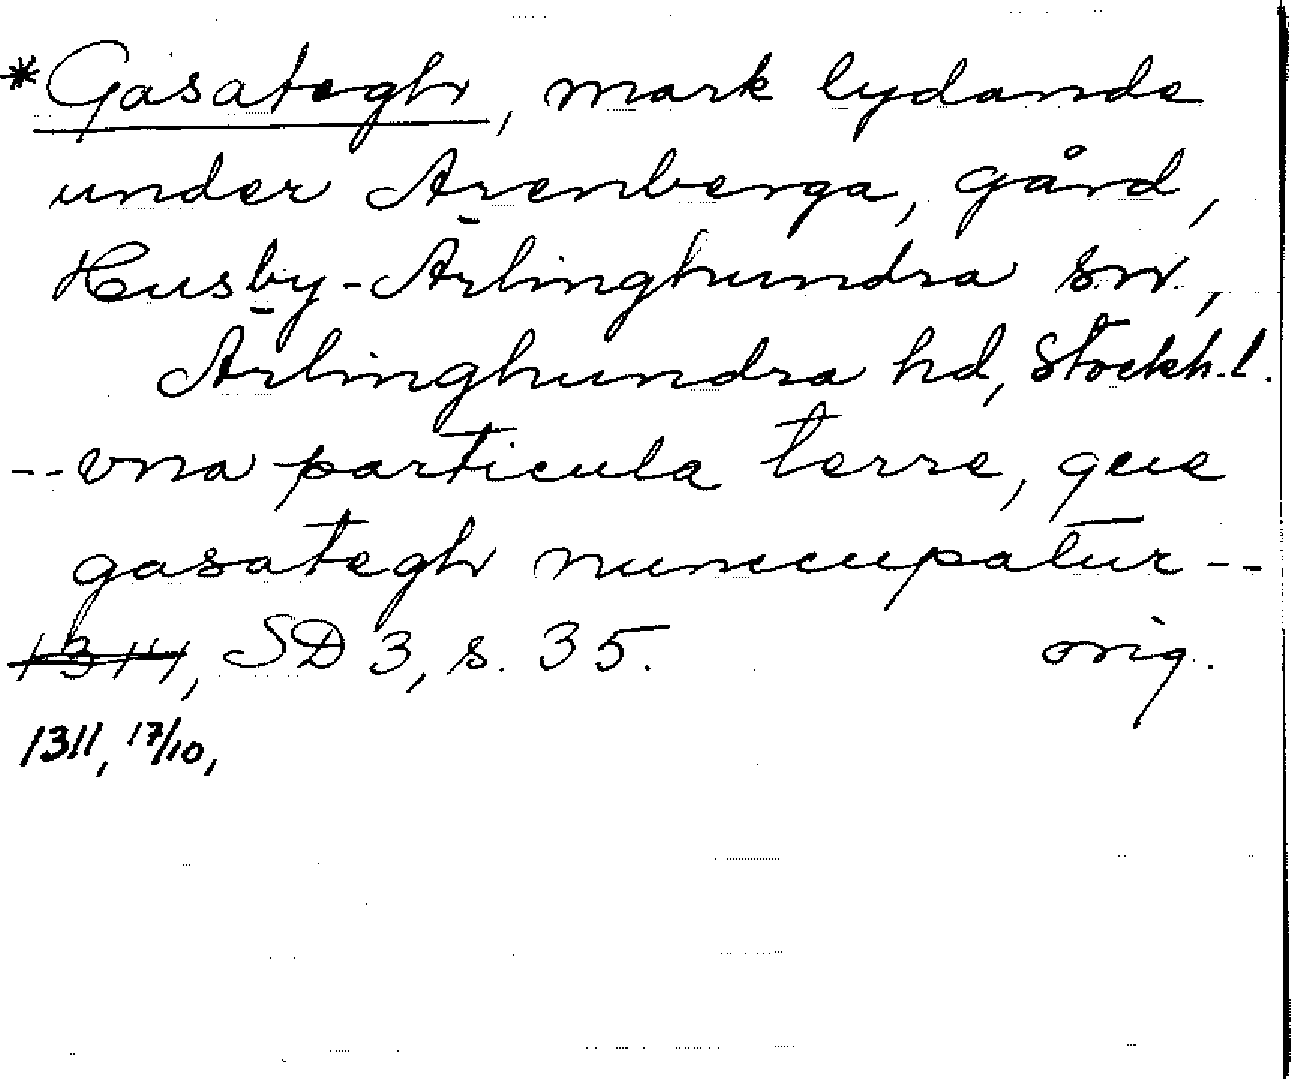 *Gasategh, mark lydande
under Arenberga, gård,
Husby-Ärlinghundra sn.,
Ärlinghundra hd, Stockh.l.
--vna particula terre, que
gasategh nuncupatur--
1314, SD 3, s. 35. orig.
1311, 17/10,